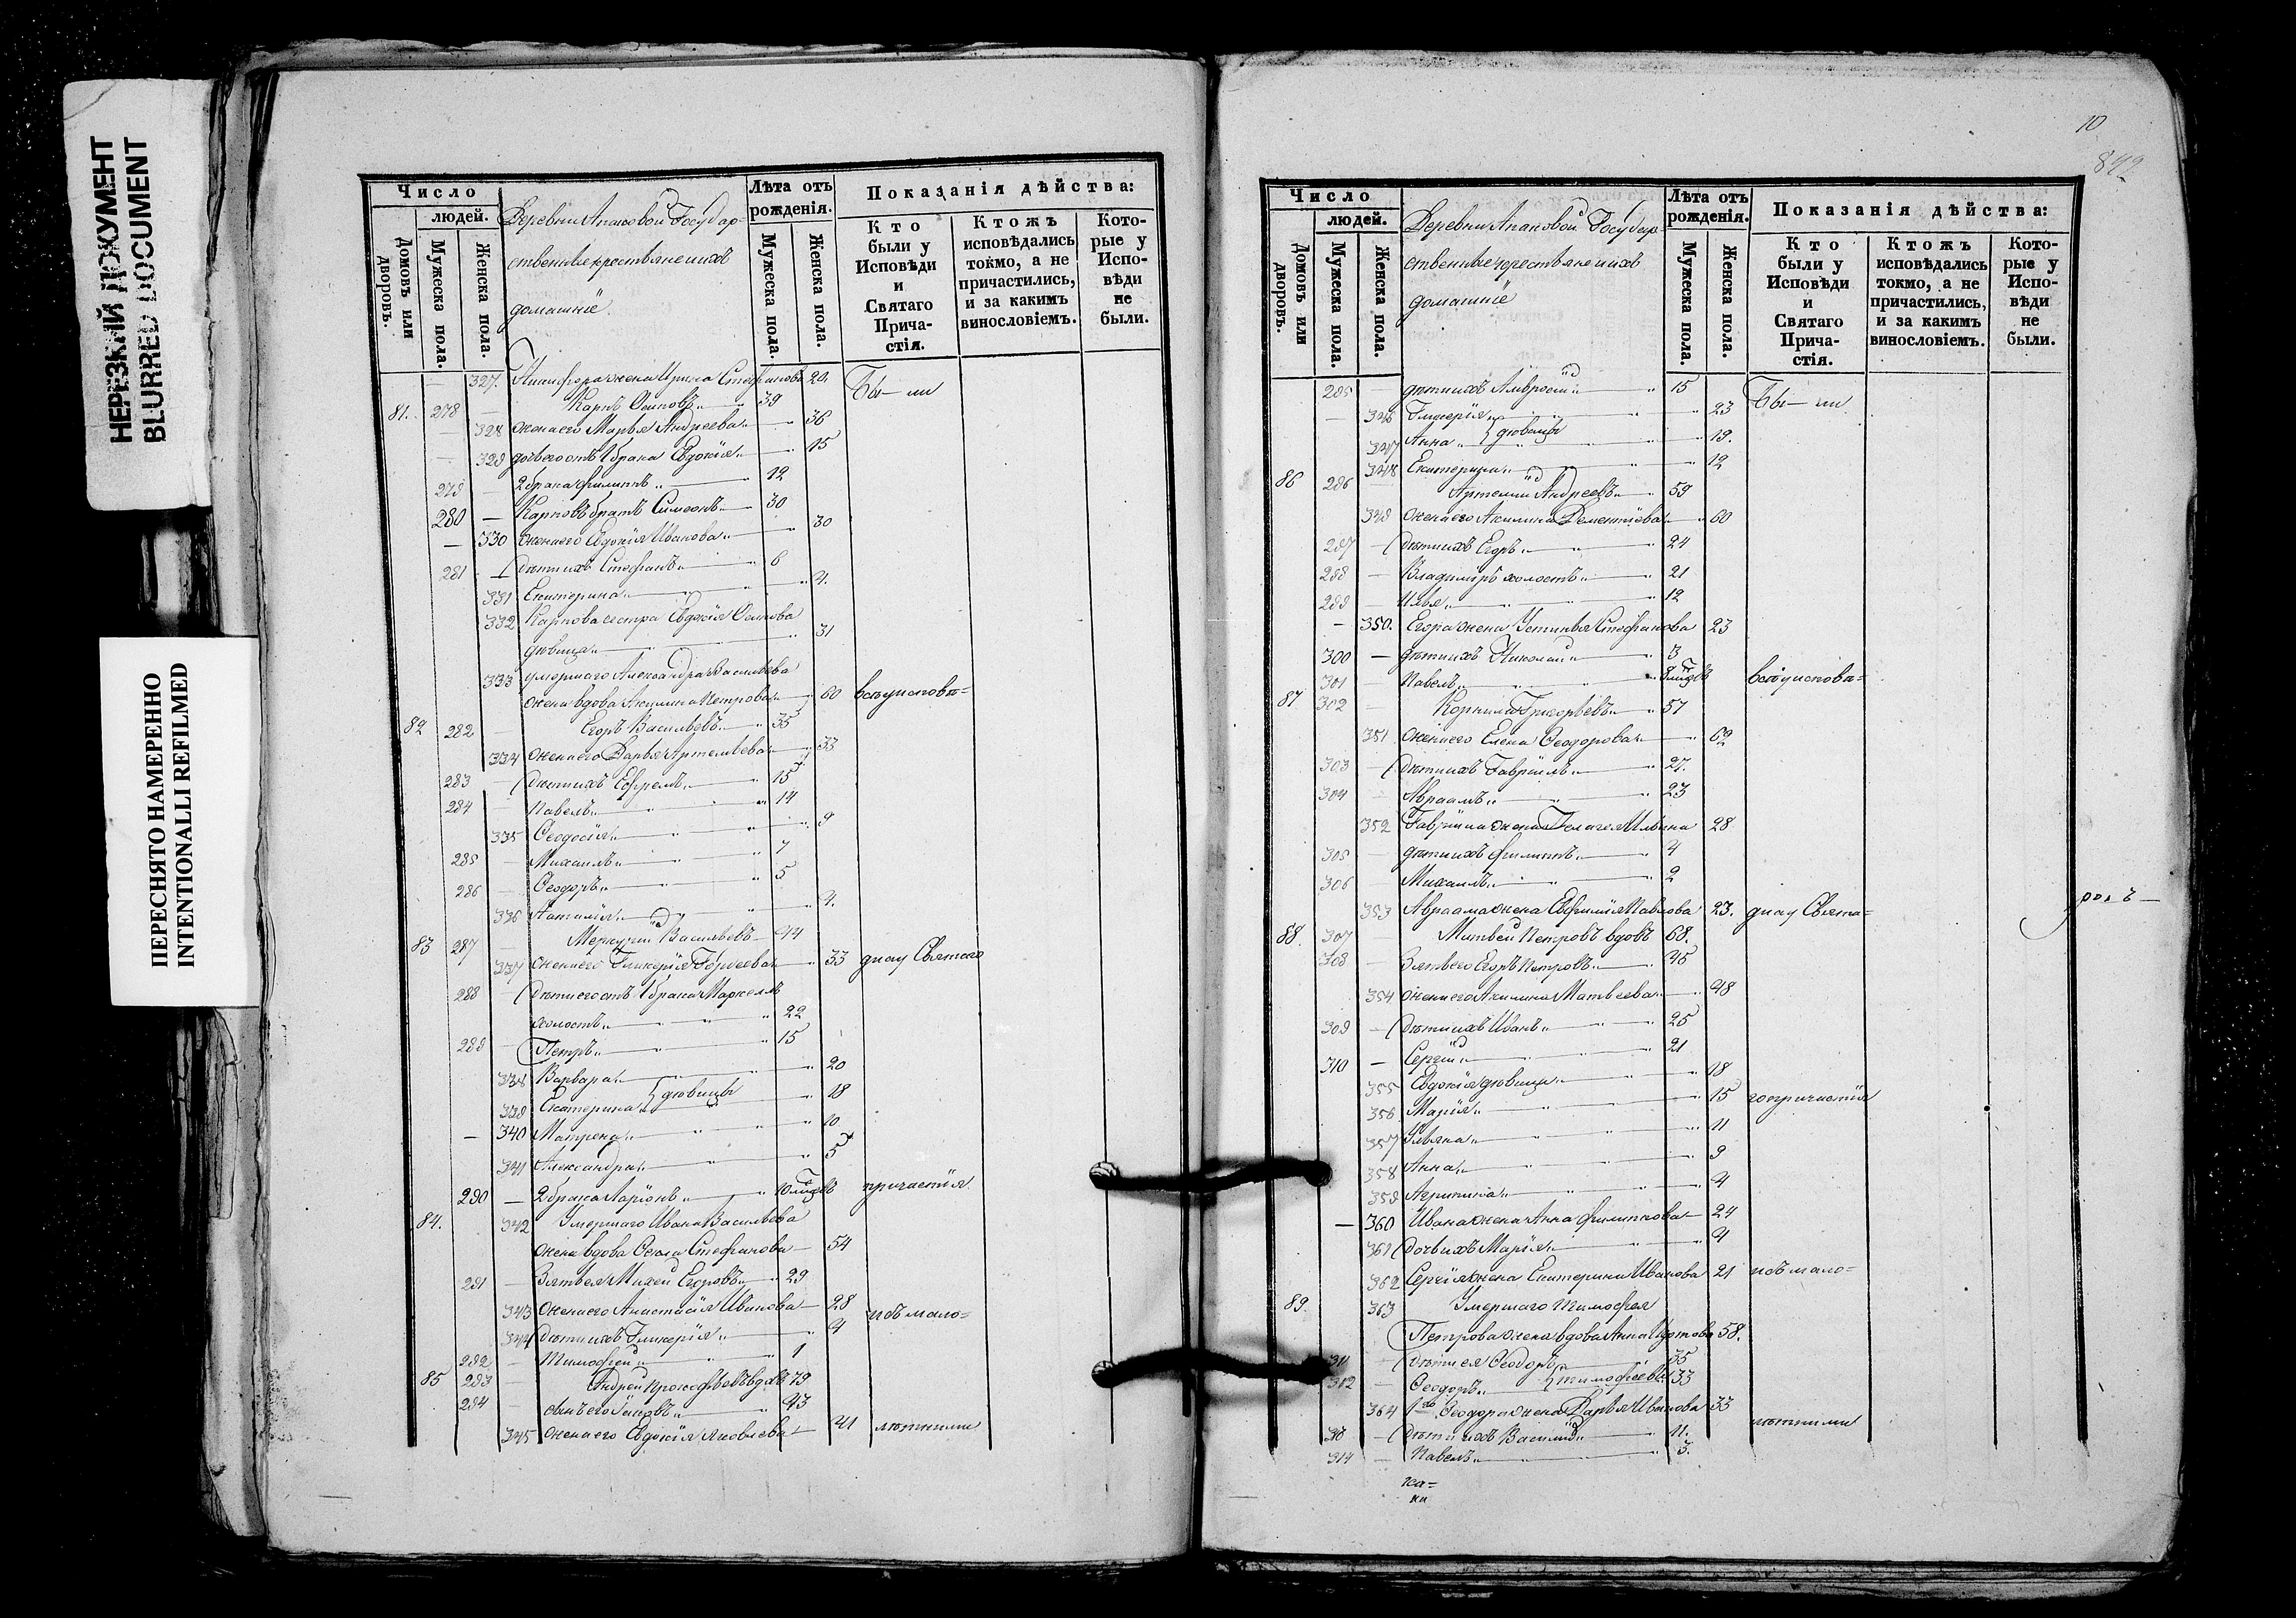 НЕРЕЗКИЙ ДОКУМЕНТ
BLURRED DOCUMENT
ПЕРЕСНЯТО НАМЕРЕННО
INTENTIONALLI REFILMED
Число
людей.
Домовъ или дворовъ.
Мужеска пола.
Женска пола.
Деревни Апаковой Государ
ственные крестьяне и ихъ
домашніе.
Лѣта отъ рожденія.
Мужеска пола.
Женска пола.
Показанія дѣйства:
Кто были у Исповѣди и Святаго Прича-стія.
Ктожъ исповѣдались токмо, а не причастились, и за какимъ винословіемъ.
Кото-рые у Испо-вѣди не были.
327. Никифора жена Ирина Стефанова 20. Бы— ли
81. 278 — Карпъ Осиповъ 39
— 328 жена его Марья Андреева 36
— 329 дочь его отъ 1 брака Евдокія 15
279 — 2 брака Филиппъ 12
280 — Карповъ братъ Симеонъ 30
— 330 жена его Евдокія Иванова 30
281 — Дѣти ихъ Стефанъ 6
331 Екатерина 4.
332 Карпова сестра Евдокія Осипова
дѣвица 31
333 умершаго Александра Васильева
жена вдова Акилина Петрова 60 вси у исповѣ=
82 282 — Егоръ Васильевъ 35
334 жена его Дарья Артемьева 33
283 — Дѣти ихъ Ефремъ 15
284 — Павелъ 14
335 Ѳеодосія 9
285 — Михаилъ 7
286 — Ѳеодоръ 5
336 Наталія 4.
83 287 — Меркурій Васильевъ 44
337 жена его Гликерія Гордеева 33 ди и у Святаго
288 — Дѣти его отъ 1 брака Маркеллъ
холостъ 22
289 — Петръ 15
338 Варвара 20
339 Екатерина } дѣвицы 18
— 340 Матрена 10
341 Александра 5
290 — 2 брака Ларіонъ 10 мѣсцевъ причастія
84. 342 Умершаго Ивана Васильева
жена вдова Ѳекла Стефанова 54
291 — Зять ея Михей Егоровъ 29
343 жена его Анастасія Иванова 28 и съ мало=
344 Дѣти ихъ Гликерія 4
292 — Тимофей 1
85 293 — Андрей Прокофьевъ вдовъ 79
294 — сынъ его Іаковъ 43
345 жена его Евдокія Яковлева 41 лѣтними
10
842
Число
людей.
Домовъ или дворовъ.
Мужеска пола.
Женска пола.
Деревни Апаковой Государ
ственные крестьяне и ихъ
домашніе
Лѣта отъ рожденія.
Мужеска пола.
Женска пола.
Показанія дѣйства:
Кто были у Исповѣди и Святаго Прича-стія.
Ктожъ исповѣдались токмо, а не причастились, и за какимъ винословіемъ.
Кото-рые у Испо-вѣди не были.
295 — дѣти ихъ Амвросій 15 Бы— ли
— 346 Гликерія 23
347 Анна } дѣвицы 19.
348 Екатерина 12
86 296 — Артемій Андреевъ 59
349 жена его Акилина Дементіева 60
297 — Дѣти ихъ Егоръ 24
298 — Владиміръ холостъ 21
299 — Илья 12
— 350. Егора жена Устинья Стефанова 23
300 — дѣти ихъ Николай 3
301 — Павелъ 8 мѣсцевъ вси у исповѣ=
87 302 — Корнилъ Григорьевъ 57
351 жена его Елена Ѳеодорова 62
303 — Дѣти ихъ Гавріилъ 27.
304 — Авраамъ 23
352 Гавріила жена Пелагея Ильина 28
305 — дѣти ихъ Филиппъ 4
306 — Михаилъ 2
353 Авраама жена Евфимія Павлова 23. ди и у Свята=
88. 307 — Матвей Петровъ вдовъ 68.
308 — Зять его Егоръ Петровъ 45
354 жена его Акилина Матвеева 48
309 — Дѣти ихъ Иванъ 25
310 — Сергій 21
355 Евдокія дѣвица 18
356 Марія 15 го причастія
357 Ульяна 11
358 Анна 9
359 Агрипина 4
— 360 Ивана жена Анна Филиппова 24
361 Дочь ихъ Марія 4
362 Сергія жена Екатерина Иванова 21 и съ мало=
89. 363 Умершаго Тимофея
Петрова жена вдова Анна 58.
311 — Дѣти ея Ѳеодоръ 35
312 — Ѳеодоръ } Тимофеевы 33
364 1го Ѳеодора жена Дарья Иванова 33
313 — Дѣти ихъ Василій 11. лѣтними
314 — Павелъ 3.